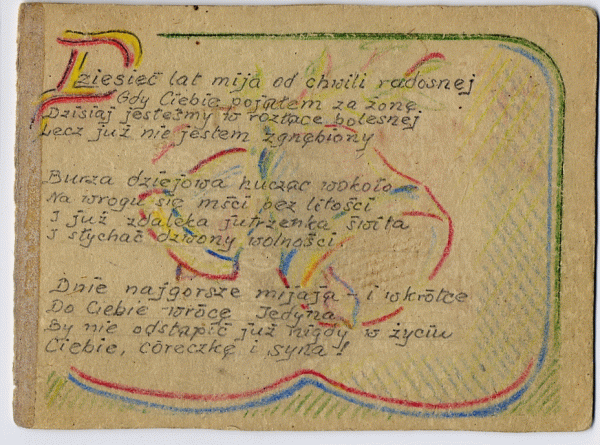 Dziesięć lat mija od chwili radosnej
Gdy Ciebie pojąłem za żonę
Dzisiaj jesteśmy w rozłące bolesnej
Lecz już nie jestem zgnębiony
Burza dziejowa hucząc wokoło
Na wrogu się mści bez litości
I już zdaleka jutrzenka świta
I słychać dzwony wolności.
Dnie najgorsze mijają - i wkrótce
Do Ciebie wrócę Jedyna
By nie odstąpić już nigdy w życiu
Ciebie, córeczkę i syna!